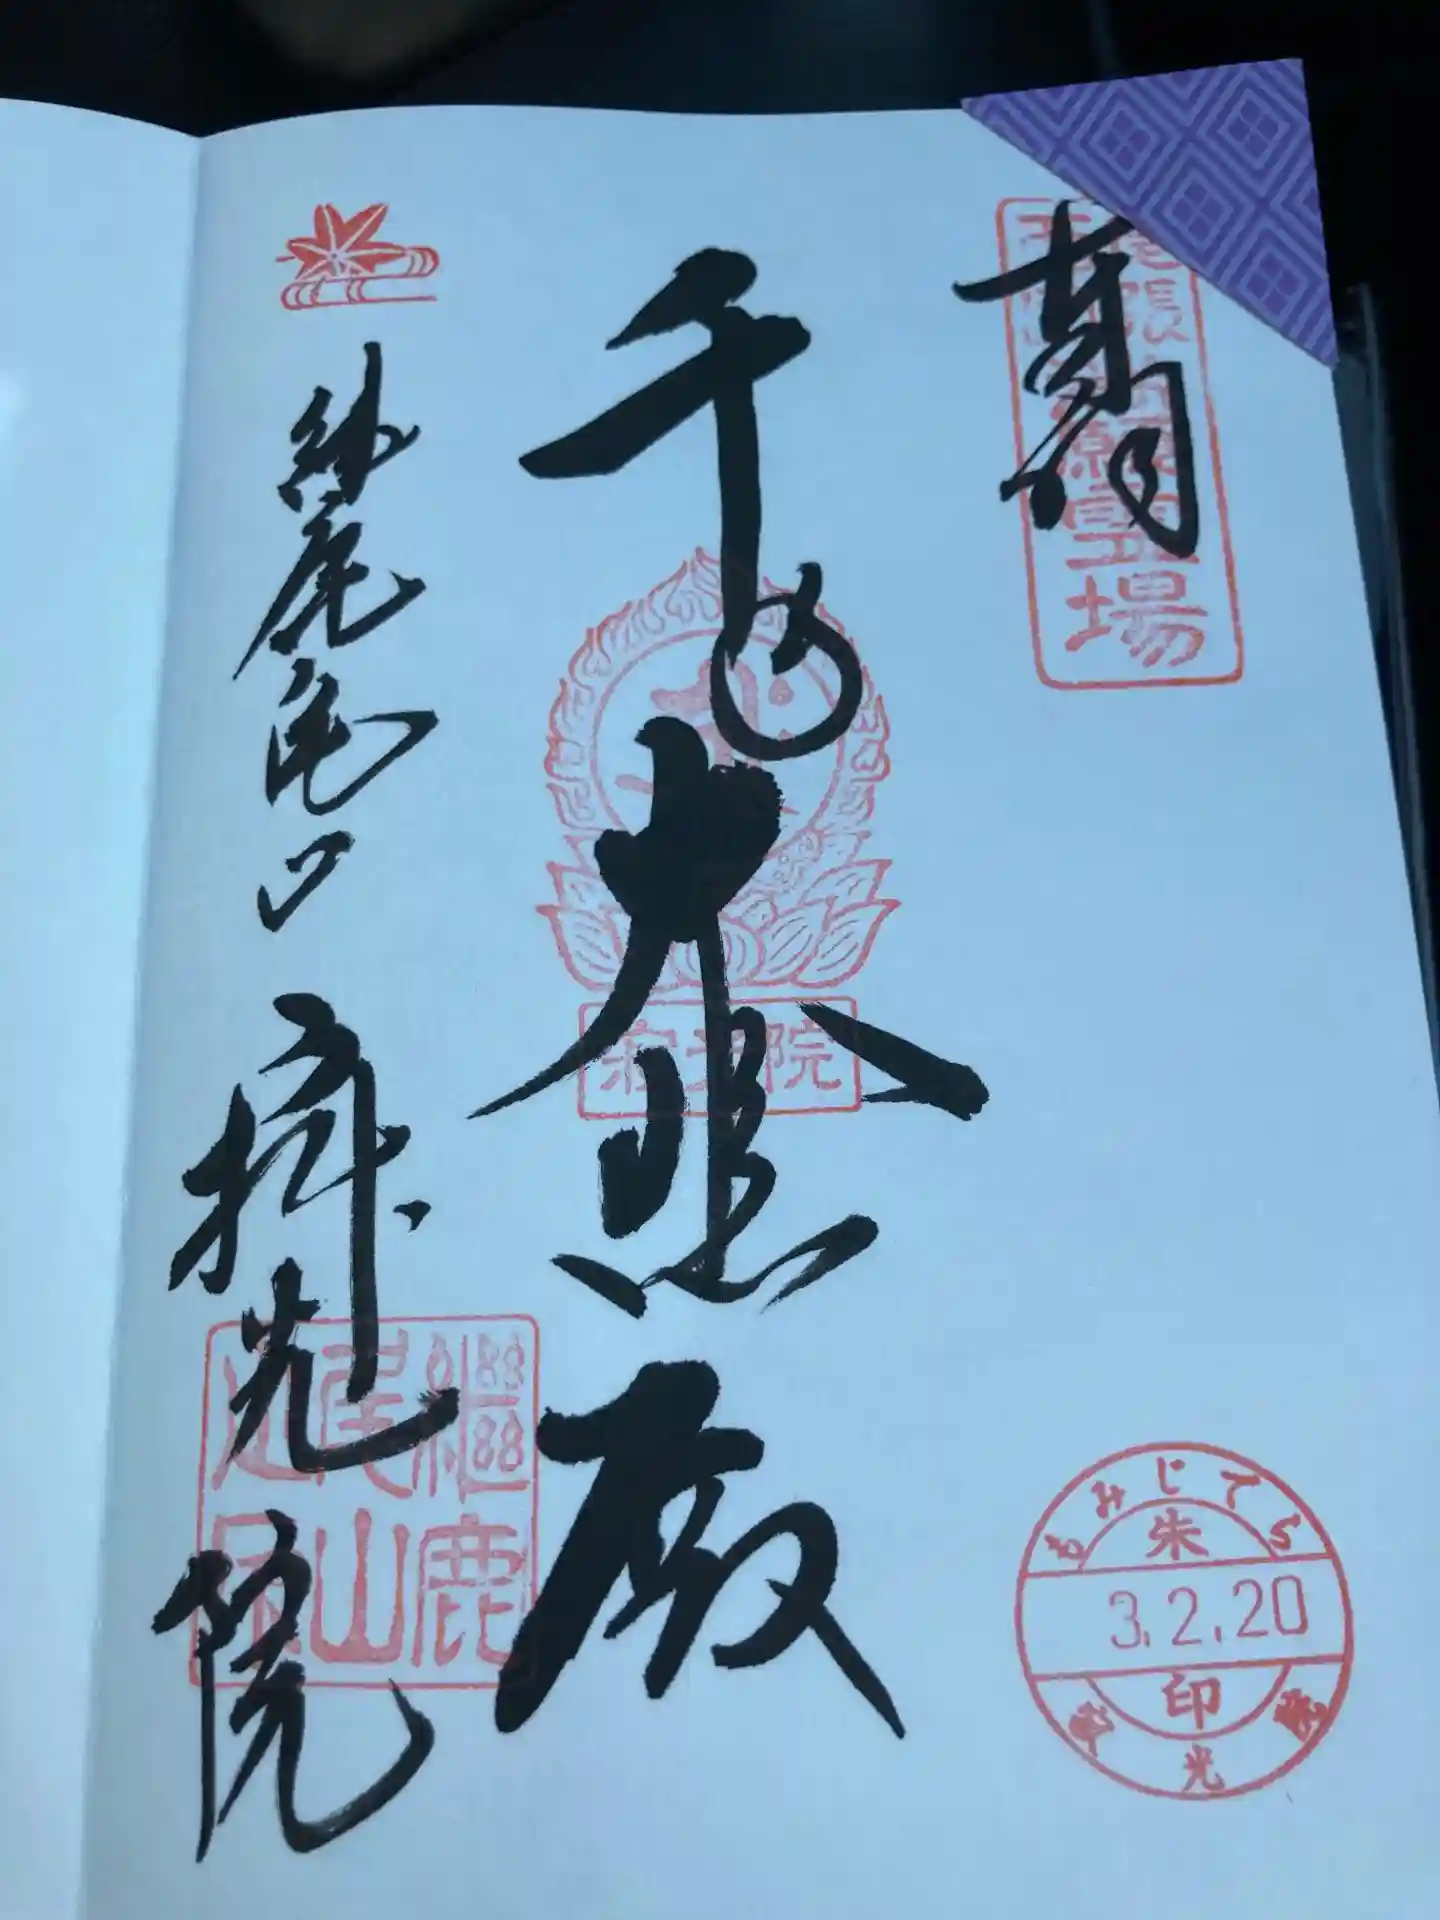 奉拝
霊場
千手大悲殿
寂光院
継鹿尾山 寂光院
もみじでら
朱
3.2.20
印
寂光院